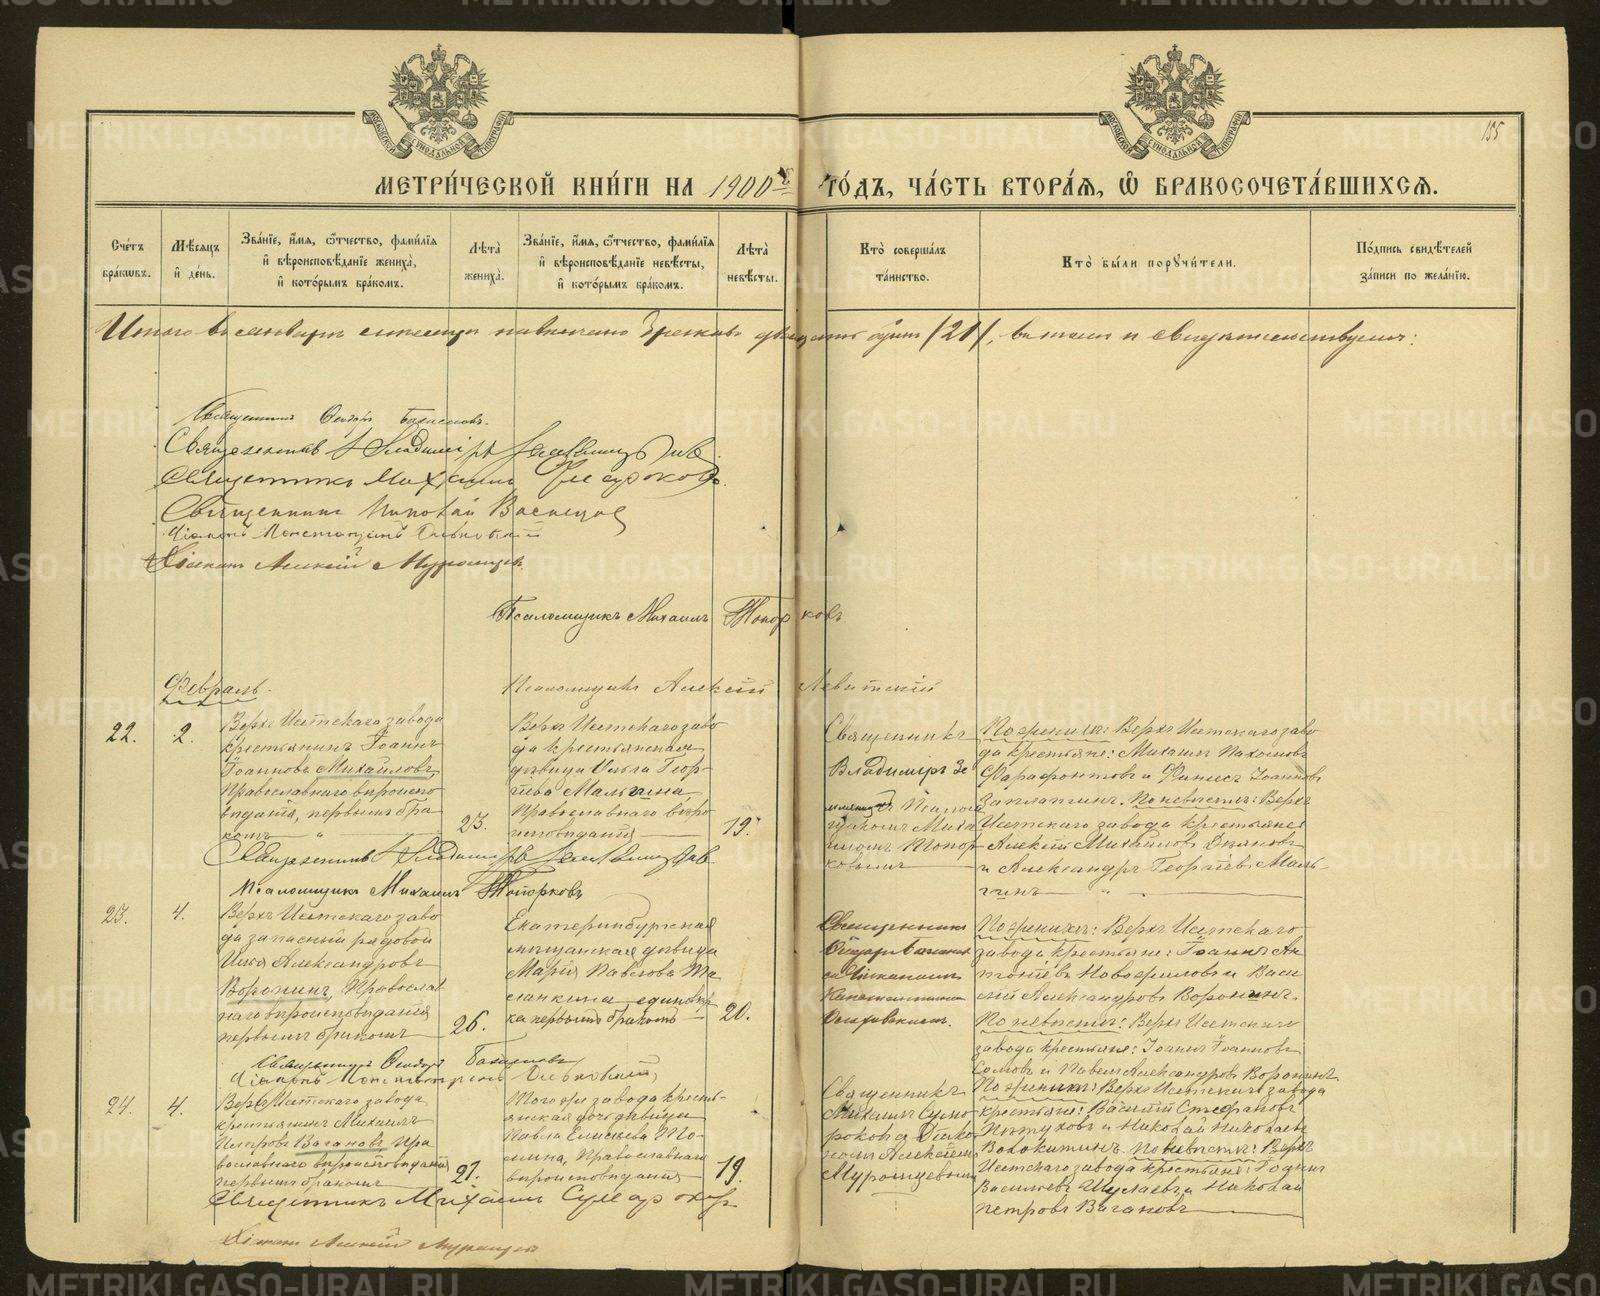 155
МЕТРИ́ЧЕСКОЙ КНИ́ГИ НА 1900й ГО́ДЪ, ЧА́СТЬ ВТОРА́Я, Ѽ БРАКОСОЧЕТА́ВШИХСЯ.
Сче́тъ бра́ковъ.
Мѣ́сяцъ и҆ де́нь.
Зва́нїе, и҆́мя, ѻ҆́тчество, фамı́лїя и҆ вѣроисповѣ́данїе жениха̀, и҆ кото́рымъ бра́комъ.
Лѣ́та жениха̀.
Зва́нїе, и҆́мя, ѻ҆́тчество, фамı́лїя и҆ вѣроисповѣ́данїе невѣ́сты, и҆ кото́рымъ бра́комъ.
Лѣ́та невѣ́сты.
Кто̀ соверша́лъ та́инство.
Кто̀ бы́ли порꙋчи́тели.
По́дпись свидѣ́телей за́писи по жела́нїю.
Итого въ январѣ мѣсяцѣ повѣнчано браковъ двадцать одинъ /21/, въ томъ и свидѣтельствуемъ:
Священникъ Ѳеодоръ
Священникъ Владиміръ
Священникъ Михаилъ Сумароковъ
Священникъ Николай Васнецов
Діаконъ Константинъ
Діаконъ Алексій Муромцевъ
Псаломщикъ Михаилъ Топорковъ
Псаломщикъ Алексій Левитскій
Февраль.
22.
2.
Верхъ Исетскаго завода
крестьянинъ Іоаннъ
Іоанновъ Михайловъ,
Православнаго вѣроиспо
вѣданія, первымъ бра
комъ
23.
Верхъ Исетскаго заво
да крестьянская
дѣвица Ольга Геор-
гіева Мальгина,
Православнаго вѣро
исповѣданія
19.
Священникъ
Владиміръ Зе
мляницынъ Псалом
щикомъ Миха
иломъ Топор
ковымъ
По женихѣ: Верхъ Исетскаго заво
да крестьяне: Михаилъ Пахомовъ
Фарафонтовъ и Іоанновъ
Заплатинъ. По невѣстѣ: Верхъ
Исетскаго завода крестьяне:
Алексій Михайловъ
и Александръ Георгіевъ Маль-
гинъ
Священникъ Владиміръ
Псаломщикъ Михаилъ Топорковъ
23.
4.
Верхъ Исетскаго заво
да запасный рядовой
Илья Александровъ
Воронинъ, Православ
наго вѣроисповѣданія
первымъ бракомъ
26.
Екатеринбургская
мѣщанская дѣвица
Марія Павлова
единовѣр
ка первымъ бракомъ
20.
Священникъ
Ѳеодоръ
съ Діакономъ
Константиномъ
По женихѣ: Верхъ Исетскаго
завода крестьяне: Іоаннъ Ан
тоніевъ Новожиловъ и Васи
лій Александровъ Воронинъ.
По невѣстѣ: Верхъ Исетскаго
завода крестьяне: Іоаннъ Іоанновъ
и Павелъ Александровъ Воронинъ.
Священникъ Ѳеодоръ
Діаконъ Константинъ
24.
4.
Верхъ Исетскаго завода
крестьянинъ Михаилъ
Петровъ Вагановъ, пра
вославнаго вѣроисповѣданія
первымъ бракомъ
21.
Того же завода кресть-
янская дочь дѣвица
Павла Елисѣева
Православнаго
вѣроисповѣданія
19.
Священникъ
Михаилъ Сума
роковъ съ Діако
номъ Алексѣемъ
Муромцевымъ
По женихѣ: Верхъ Исетскаго завода
крестьяне: Василій Стефановъ
Пѣтуховъ и Николай Николаевъ
Волокитинъ. По невѣстѣ: Верхъ
Исетскаго завода крестьяне: Іоаннъ
Васильевъ и Николай
Петровъ Вагановъ
Священникъ Михаилъ Сумароковъ
Діаконъ Алексій Муромцевъ
METRIKI.GASO-URAL.RU